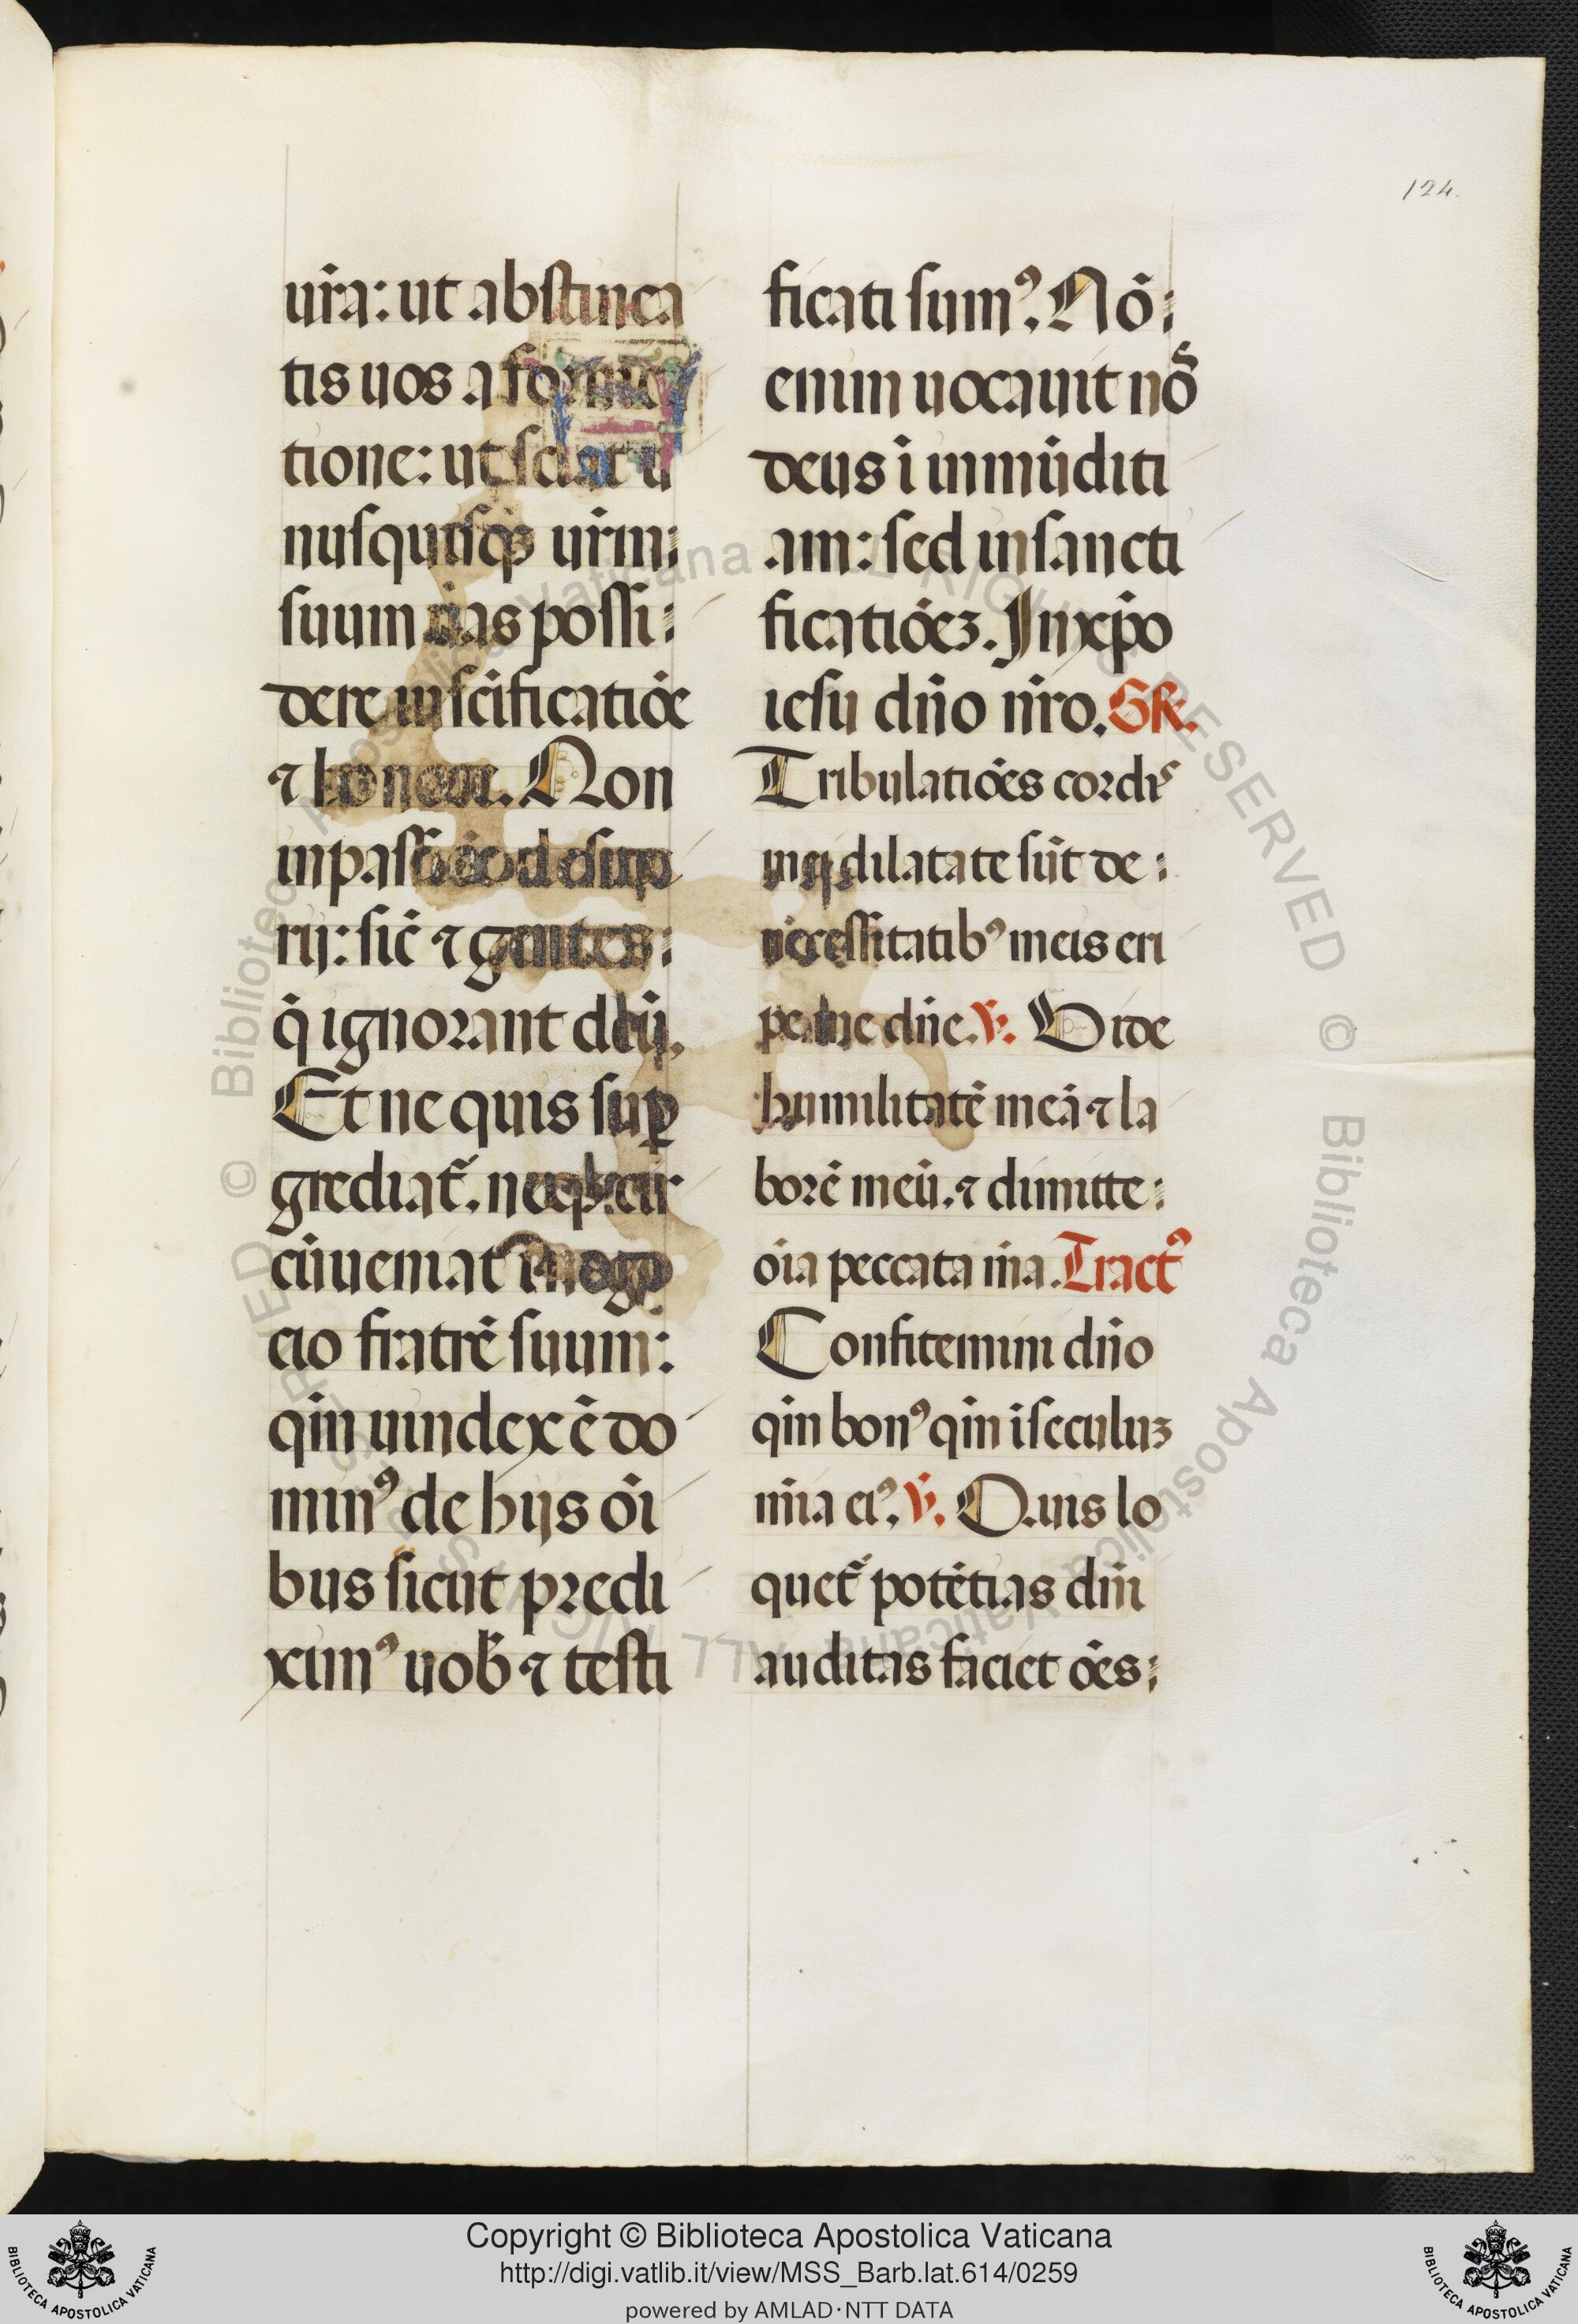 124.
ur̄a: ut abstinea
tis uos a fornica
tione: ut sciat u
nusquisq3 ur̄m:
suum uas possi:
dere in sc̄ificatiōe
⁊ honore. Non
in passiōe desiderij
rij: sic̄ ⁊ gentes:
q̄ ignorant deū.
Et ne quis sup
grediat̄. neq3 cir
cūueniat in nego
cio fratrē suum:
qm̄ uindex ē do
minꝰ de hijs oī
bus sicut predi
ximꝰ uob̄ ⁊ testi
ficati sumꝰ. Nō:
enim uocauit nōs
deus ī inmūditi
am: sed in sancti
ficatiōe3. In xp̄o
iesu dn̄o nr̄o. Gr̄.
Tribulatiōes cordis
mei dilatate sūt de:
necessitatibꝰ meis eri
pe me dn̄e. ℣. Uide
humilitatē meā ⁊ la
borē meū. ⁊ dimitte:
oīa peccata m̄a. Tractꝰ
Confitemini dn̄o
qm̄ bonꝰ qm̄ ī seculu3
mīa eiꝰ. ℣. Quis lo
quet̄ potētias dn̄i
auditas faciet ōes:
© Biblioteca Apostolica Vaticana ALL RIGHTS RESERVED
© Biblioteca Apostolica Vaticana ALL RIGHTS RESERVED
Copyright © Biblioteca Apostolica Vaticana
http://digi.vatlib.it/view/MSS_Barb.lat.614/0259
powered by AMLAD·NTT DATA
BIBLIOTECA APOSTOLICA VATICANA
BIBLIOTECA APOSTOLICA VATICANA